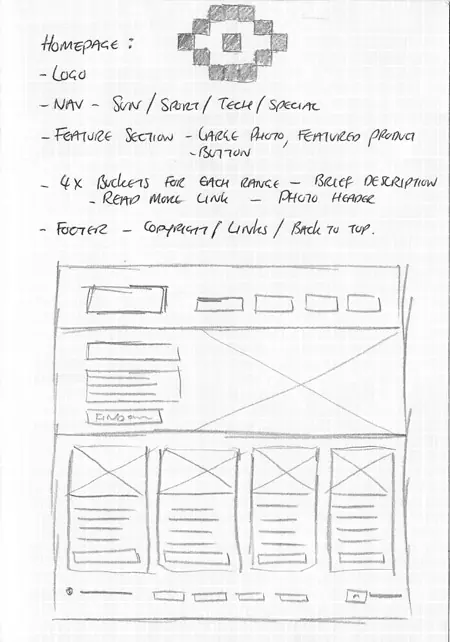 HOMEPAGE :
- LOGO
- NAV - SUN / SPORT / TECH / SPECIAL
- FEATURE SECTION - LARGE PHOTO, FEATURED PRODUCT
- BUTTON
- 4X BUCKETS FOR EACH RANGE - BRIEF DESCRIPTION
- READ MORE LINK - PHOTO HEADER
- FOOTER - COPYRIGHT / LINKS / BACK TO TOP.